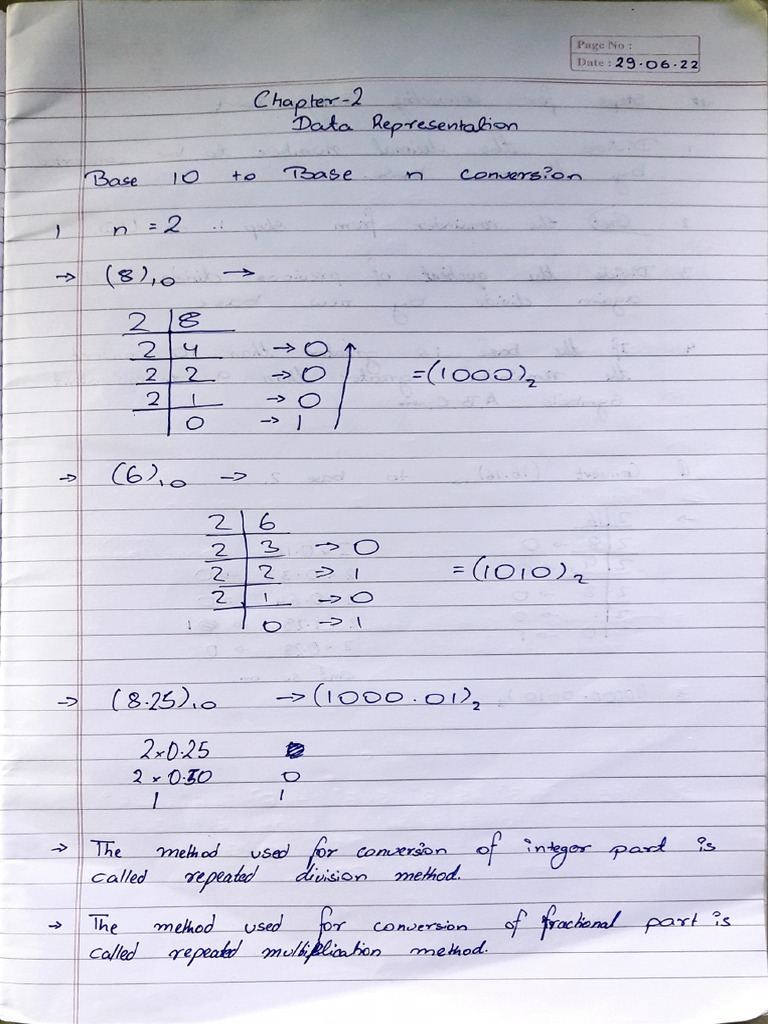 Page No :
Date : 29.06.22
Chapter-2
Data Representation
Base 10 to Base n conversion
1 n = 2
→ (8)₁₀ →
2 | 8
2 | 4 → 0
2 | 2 → 0 = (1000)₂
2 | 1 → 0
0 → 1
→ (6)₁₀ →
2 | 6
2 | 3 → 0
2 | 2 → 1 = (1010)₂
2 | 1 → 0
0 → 1
→ (8.25)₁₀ → (1000.01)₂
2×0.25
2×0.50 0
1 1
→ The method used for conversion of integer part is
called repeated division method.
→ The method used for conversion of fractional part is
called repeated multiplication method.